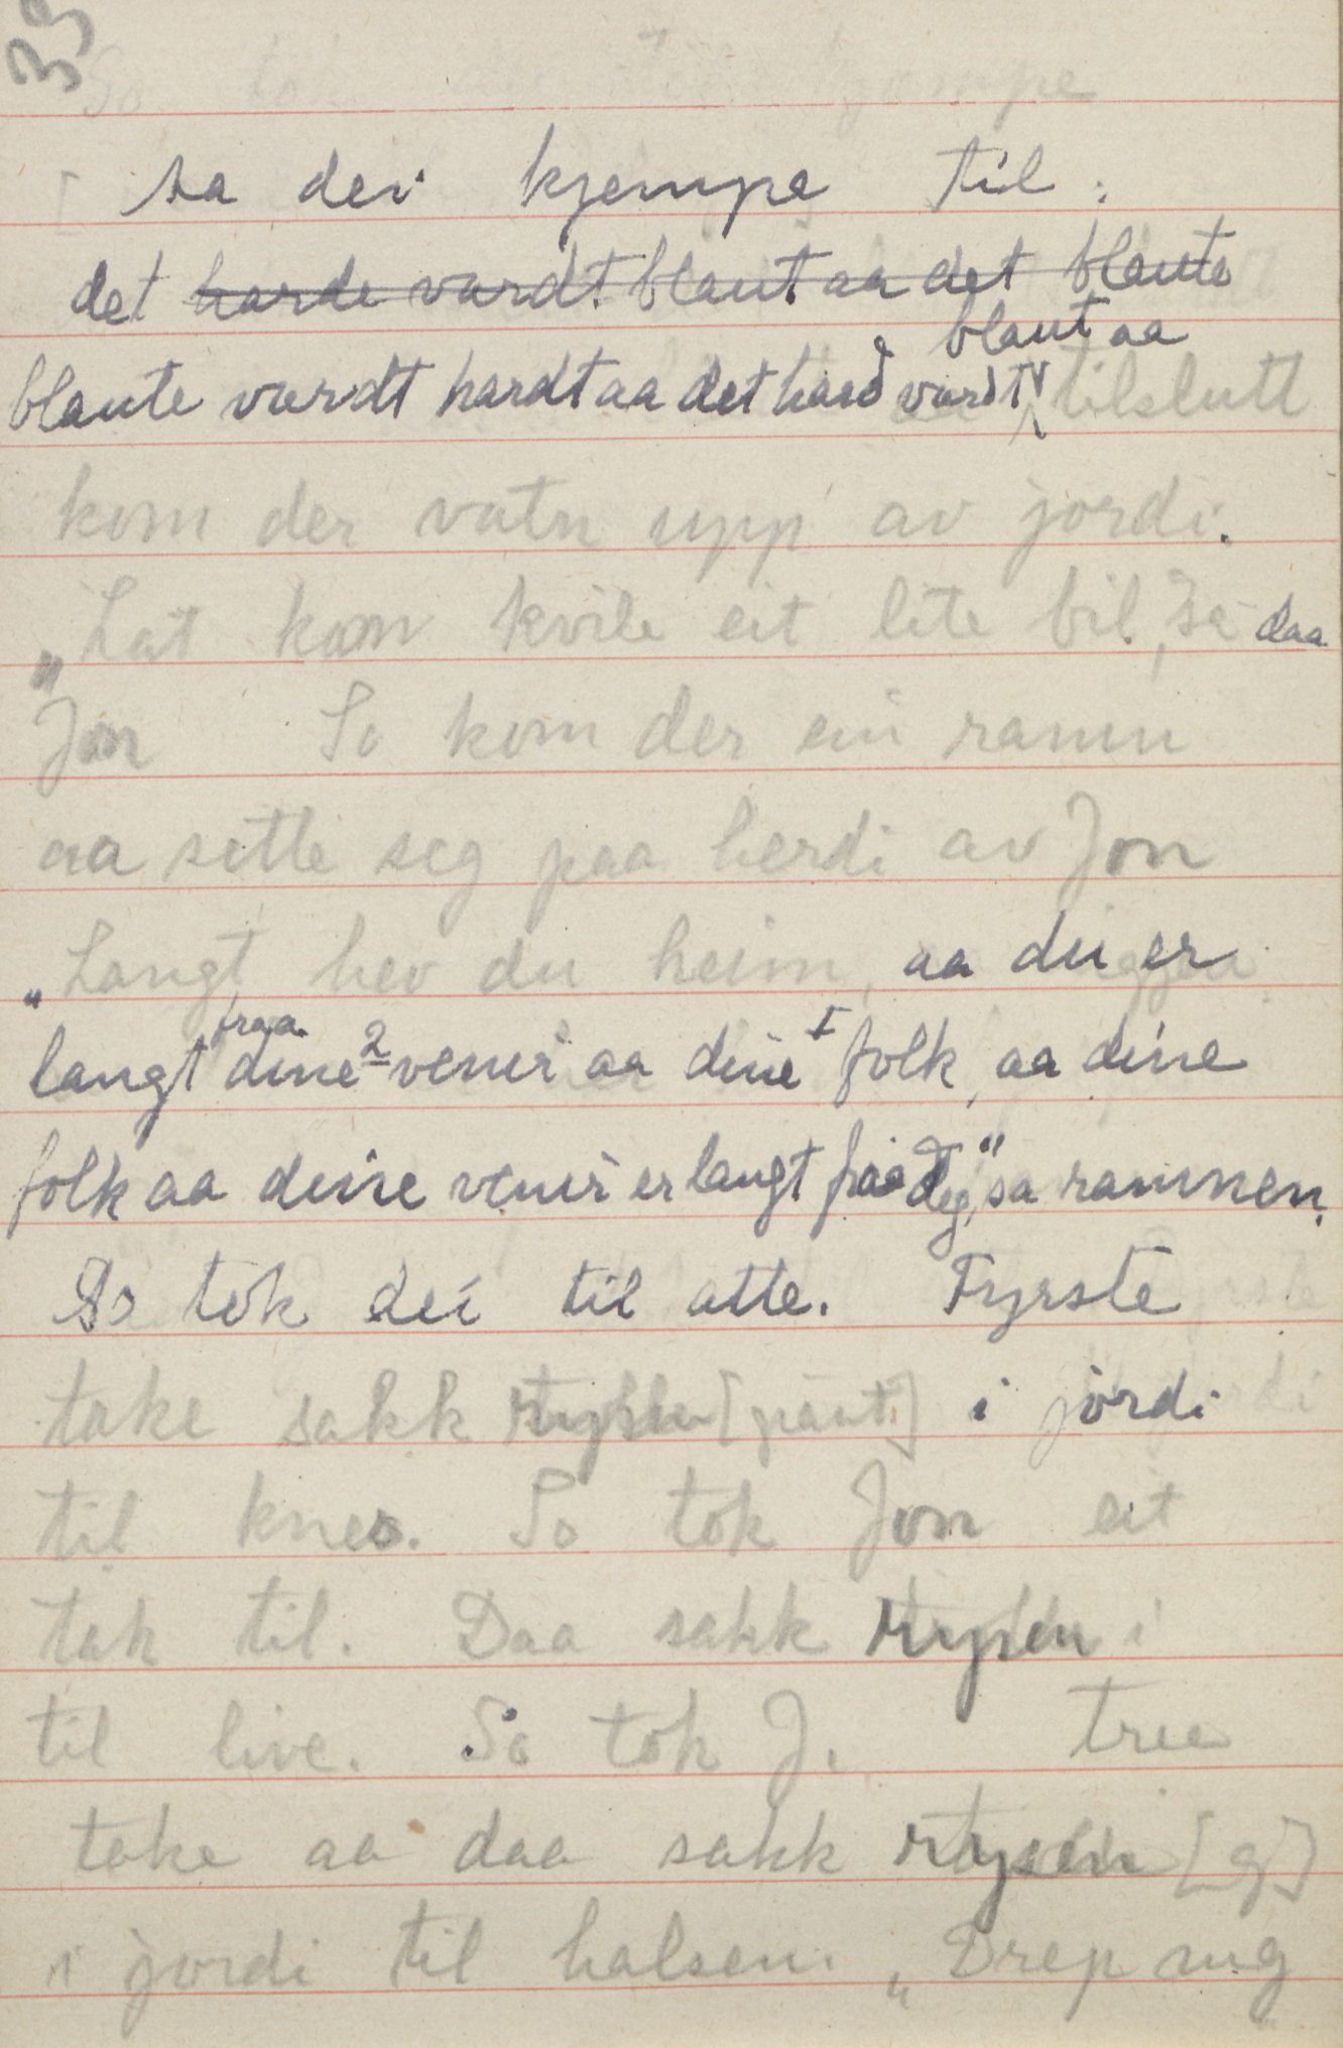 39
sa dei kjempe til.
det harde vardt blaut aa det blaute
blaut aa
blaute vardt hardt aa det hard vardt tilslutt
kom der vatn upp av jordi.
„Lat kom kvile eit lite bil, sa daa
Jon So kom der ein ramn
aa sette seg paa herdi av Jon
„Langt hev du heim, aa du er
fraa 2 I
langt dine vener aa dine folk, aa dine
folk aa deine vener er langt fraa deg," sa ramnen.
So tok dei til atte. Fyrste
take sakk rysen [giant] i jordi
til knes. So tok Jon eit
tak til. Daa sakk rysen i
til live. So tok J. tree
take aa daa sakk rysen [g]
i jordi til halsen. „Drep meg